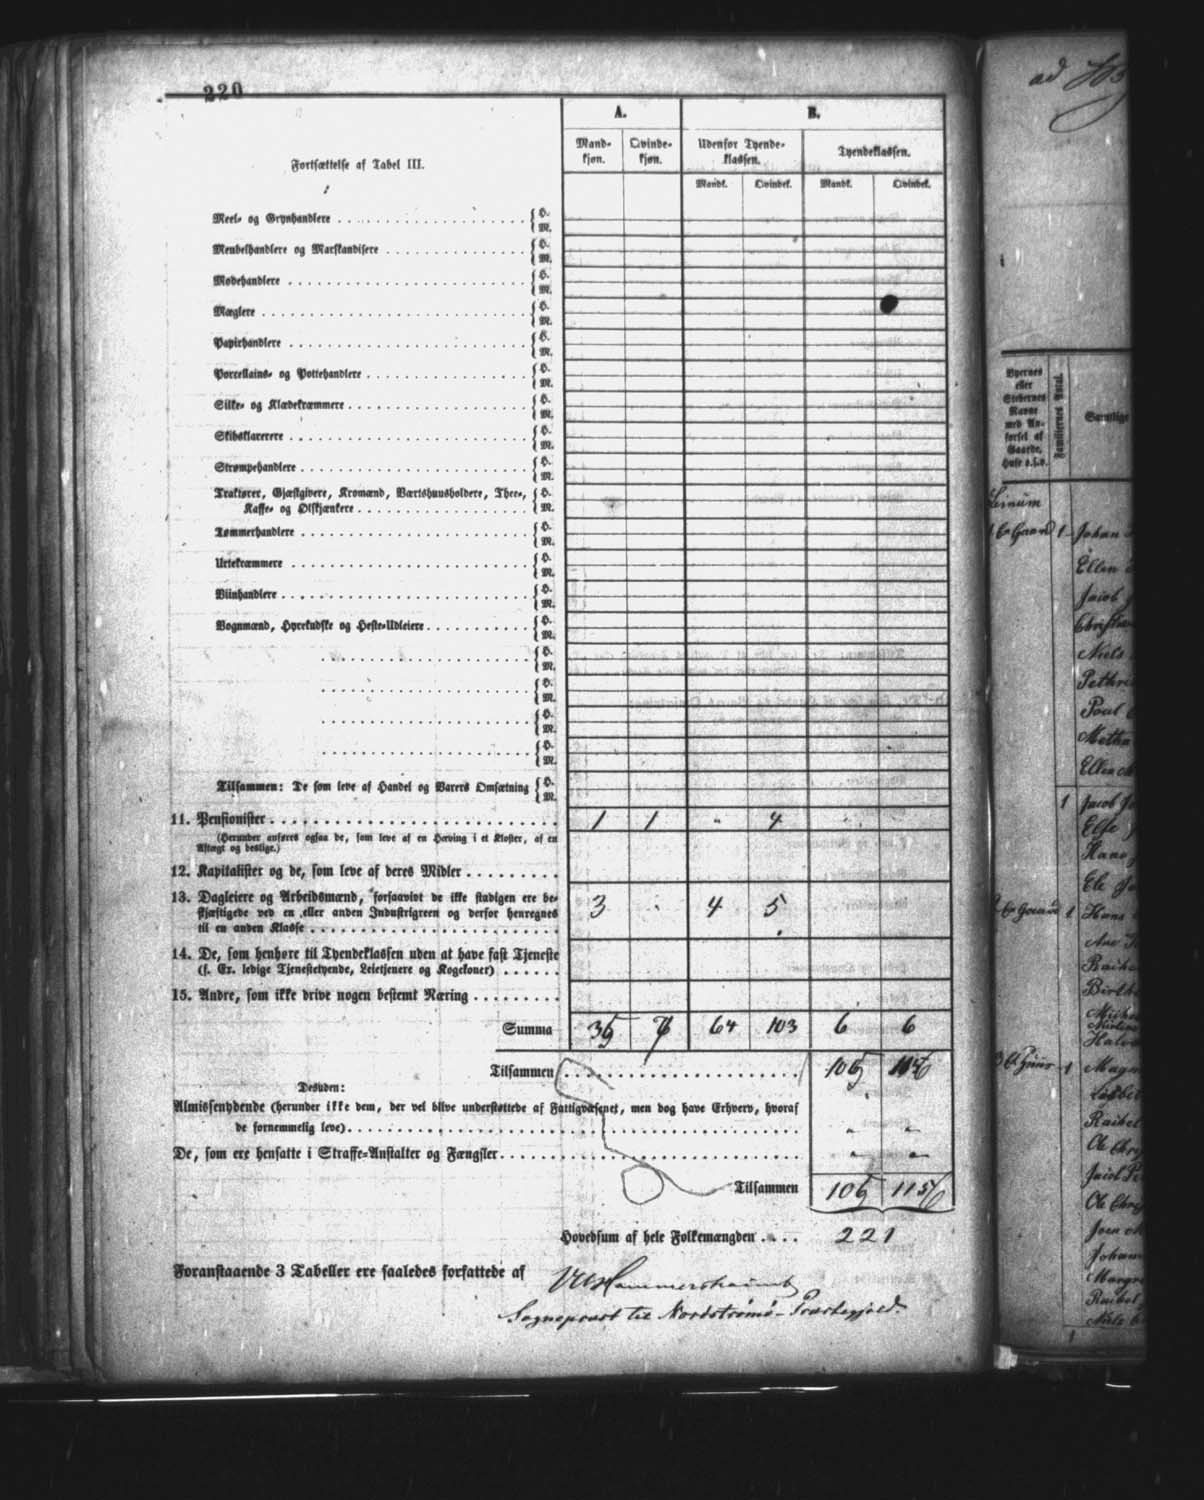 220
A.
B.
Fortsættelse af Tabel III.
Mand-
kjøn.
Qvinde-
kjøn.
Udenfor Tyende-
klassen.
Tyendeklassen.
Mandk.
Qvindek.
Mandk.
Qvindek.
Meel- og Grynhandlere { H.
M.
Meubelhandlere og Marskandisere { H.
M.
Modehandlere { H.
M.
Mæglere { H.
M.
Papirhandlere { H.
M.
Porcellains- og Pottehandlere { H.
M.
Silke- og Klædekræmmere { H.
M.
Skibsklarerere { H.
M.
Strømpehandlere { H.
M.
Traktører, Gjæstgivere, Kromænd, Værtshuusholdere, Thee-, { H.
Kaffe- og Ølskjænkere M.
Tømmerhandlere { H.
M.
Urtekræmmere { H.
M.
Viinhandlere { H.
M.
Vognmænd, Hyrekudske og Heste-Udleiere { H.
M.
{ H.
M.
{ H.
M.
{ H.
M.
{ H.
M.
Tilsammen: De som leve af Handel og Varers Omsætning { H.
M.
11. Pensionister 1 1 " 4
(Herunder anføres ogsaa de, som leve af en Hæving i et Kloster, af en
Aftægt og deslige.)
12. Kapitalister og de, som leve af deres Midler
13. Dagleiere og Arbeidsmænd, forsaavidt de ikke stadigen ere be-
skjæftigede ved en eller anden Industrigreen og derfor henregnes
til en anden Klasse 3 4 5
14. De, som henhøre til Tyendeklassen uden at have fast Tjeneste
(f. Ex. ledige Tjenestetyende, Leietjenere og Kogekoner)
15. Andre, som ikke drive nogen bestemt Næring
Summa 35 64 103 6 6
Tilsammen 105
Desuden:
Almissenydende (herunder ikke dem, der vel blive understøttede af Fattigvæsenet, men dog have Erhverv, hvoraf
de fornemmelig leve) " "
De, som ere hensatte i Straffe-Anstalter og Fængsler " "
Tilsammen 105 116
Hovedsum af hele Folkemængden 221
Foranstaaende 3 Tabeller ere saaledes forfattede af
Hammershaimb
Sognepræst til Nordstrømø-Præstegjeld.
ad
Byernes
eller
Stedernes
Navne
med An-
førsel af
Gaarde,
Huse o.s.v.
Familiernes Antal.
Samtlige
1 Johan
Ellen
Jacob
Christian
Niels
Poul
Ellen
1 Jacob
Else
Hans
Ole
1 Hans
Ane
1 Magn
Ole Chri
Ole Chri
Joen
Johann
Margre
Niels
1